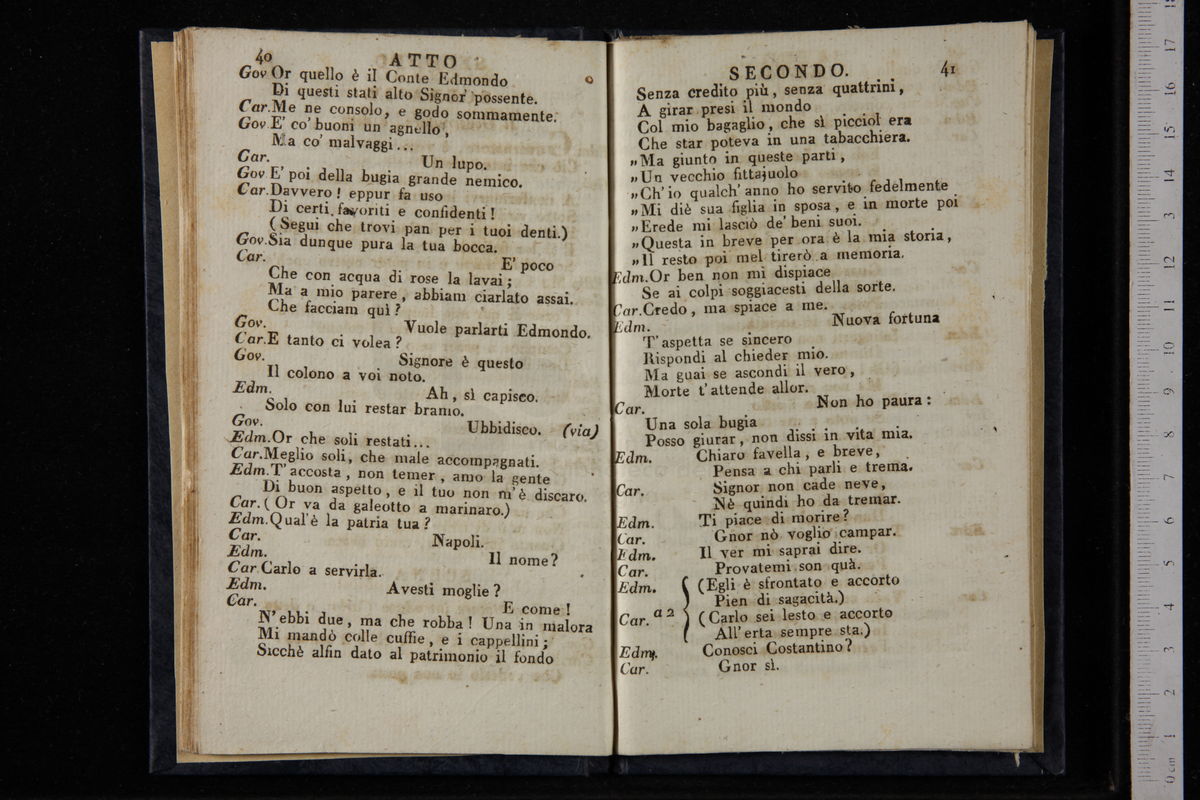 40
ATTO
Gov Or quello è il Conte Edmondo
Di questi stati alto Signor possente.
Car.Me ne consolo, e godo sommamente.
Gov.E' co' buoni un agnello,
Ma co' malvaggi...
Car. Un lupo.
Gov.E' poi della bugia grande nemico.
Car.Davvero! eppur fa uso
Di certi favoriti e confidenti!
(Segui che trovi pan per i tuoi denti.)
Gov.Sia dunque pura la tua bocca.
Car. E' poco
Che con acqua di rose la lavai;
Ma a mio parere, abbiam ciarlato assai.
Che facciam quì?
Gov. Vuole parlarti Edmondo.
Car.E tanto ci volea?
Gov. Signore è questo
Il colono a voi noto.
Edm. Ah, sì capisco.
Solo con lui restar bramo.
Gov. Ubbidisco. (via)
Edm.Or che soli restati...
Car.Meglio soli, che male accompagnati.
Edm.T'accosta, non temer, amo la gente
Di buon aspetto, e il tuo non m'è discaro.
Car.(Or va da galeotto a marinaro.)
Edm.Qual'è la patria tua?
Car. Napoli.
Edm. Il nome?
Car.Carlo a servirla.
Edm. Avesti moglie?
Car. E come!
N'ebbi due, ma che robba! Una in malora
Mi mandò colle cuffie, e i cappellini;
Sicchè alfin dato al patrimonio il fondo
SECONDO.
41
Senza credito più, senza quattrini,
A girar presi il mondo
Col mio bagaglio, che sì picciol era
Che star poteva in una tabacchiera.
„Ma giunto in queste parti,
„Un vecchio fittajuolo
„Ch'io qualch'anno ho servito fedelmente
„Mi diè sua figlia in sposa, e in morte poi
„Erede mi lasciò de' beni suoi.
„Questa in breve per ora è la mia storia,
„Il resto poi mel tirerò a memoria.
Edm.Or ben non mi dispiace
Se ai colpi soggiacesti della sorte.
Car.Credo, ma spiace a me.
Edm. Nuova fortuna
T'aspetta se sincero
Rispondi al chieder mio.
Ma guai se ascondi il vero,
Morte t'attende allor.
Car. Non ho paura:
Una sola bugia
Posso giurar, non dissi in vita mia.
Edm. Chiaro favella, e breve,
Pensa a chi parli e trema.
Car. Signor non cade neve,
Nè quindi ho da tremar.
Edm. Ti piace di morire?
Car. Gnor nò voglio campar.
Edm. Il ver mi saprai dire.
Car. Provatemi son quà.
Edm. (Egli è sfrontato e accorto
Pien di sagacità.)
Car. a 2 (Carlo sei lesto e accorto
All'erta sempre sta.)
Edm. Conosci Costantino?
Car. Gnor sì.
0 cm 1 2 3 4 5 6 7 8 9 10 11 12 13 14 15 16 17 18